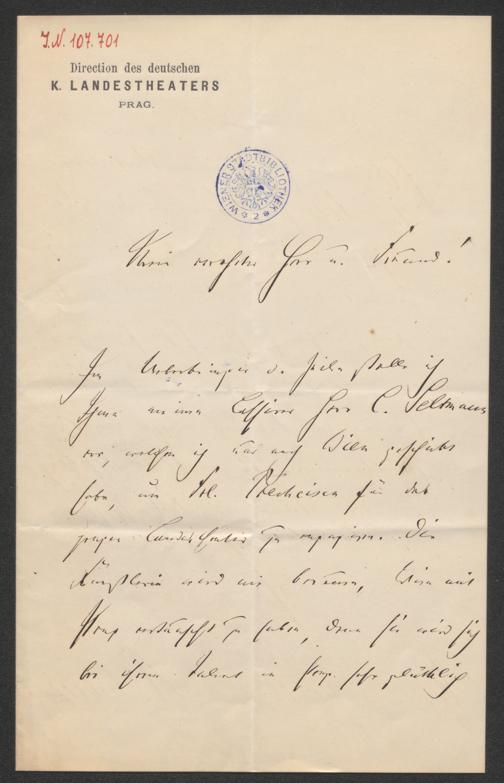 J.N. 107.701
Direction des deutschen
K. LANDESTHEATERS
PRAG.
WIENER STADTBIBLIOTHEK
2
Mein verehrter Herr u. Freund!
Im Ueberbringer d. Zeilen stelle ich
Ihnen meinen Cassierer Herr C. Seltmann
vor, welchen ich nach Wien geschickt
habe, um Frl. für das
prager Landestheater zu engagieren. Die
Künstlerin wird nie bereuen, Wien mit
Prag vertauscht zu haben, denn sie wird sich
bei ihrem Talent in Prag sehr glücklich